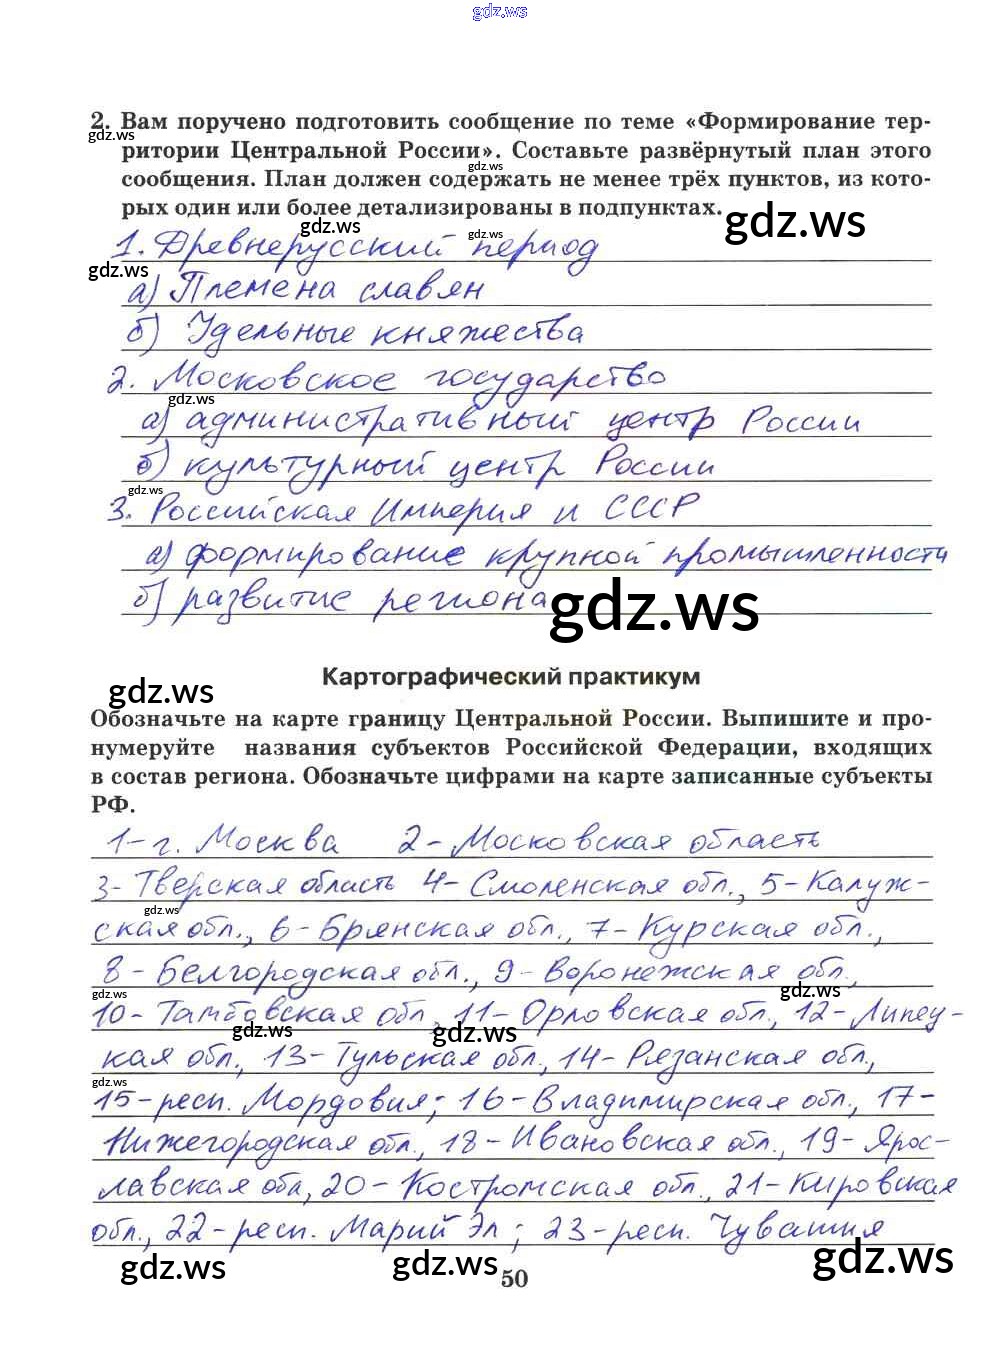 gdz.ws
2. Вам поручено подготовить сообщение по теме «Формирование тер-
gdz.ws
ритории Центральной России». Составьте развёрнутый план этого
gdz.ws
сообщения. План должен содержать не менее трёх пунктов, из кото-
рых один или более детализированы в подпунктах.
gdz.ws
gdz.ws
gdz.ws
1. Древнерусский период
gdz.ws
а) Племена славян
б) Удельные княжества
2. Московское государство
gdz.ws
а) административный центр России
б) культурный центр России
gdz.ws
3. Российская Империя и СССР
а) формирование крупной промышленности
б) развитие региона
gdz.ws
Картографический практикум
gdz.ws
Обозначьте на карте границу Центральной России. Выпишите и про-
нумеруйте названия субъектов Российской Федерации, входящих
в состав региона. Обозначьте цифрами на карте записанные субъекты
РФ.
1- г. Москва 2- Московская область
3- Тверская область 4- Смоленская обл., 5- Калуж-
gdz.ws
ская обл., 6- Брянская обл., 7- Курская обл.,
8- Белгородская обл., 9- Воронежская обл.,
gdz.ws
gdz.ws
10- Тамбовская обл, 11- Орловская обл., 12- Липец-
gdz.ws
gdz.ws
кая обл., 13- Тульская обл., 14- Рязанская обл.,
gdz.ws
15- респ. Мордовия; 16- Владимирская обл., 17-
Нижегородская обл., 18- Ивановская обл., 19- Ярос-
лавская обл, 20- Костромская обл., 21- Кировская
обл., 22- респ. Марий Эл; 23- респ. Чувашия
gdz.ws
gdz.ws
gdz.ws
50